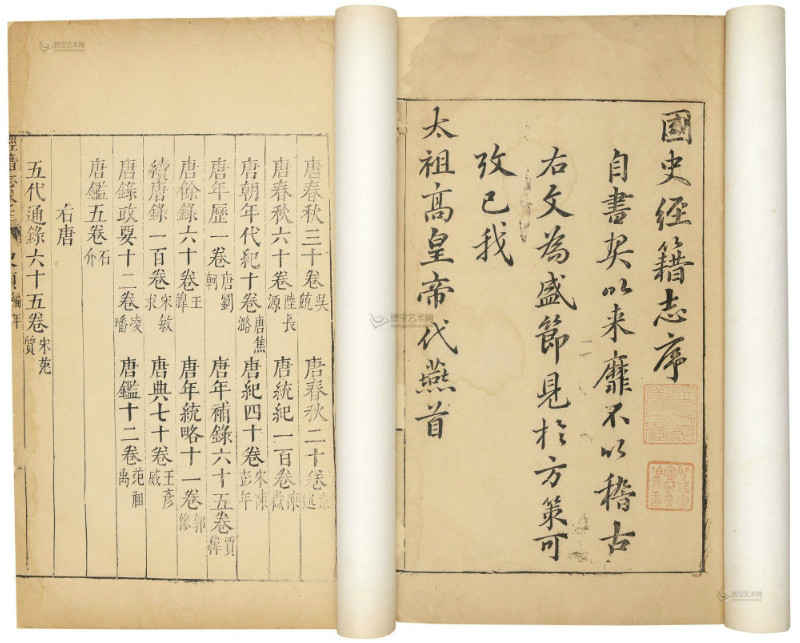 國史經籍志序
自書契以来靡不以稽古
右文為盛節見於方策可
攷已我
太祖高皇帝代燕首
唐春秋三十卷吳兢 唐春秋二十卷
唐春秋六十卷陸長源 唐統紀一百卷陳嶽
唐朝年代紀十卷唐焦璐 唐紀四十卷宋陳彭年
唐年歷一卷唐劉軻 唐年補錄六十五卷賈緯
唐餘錄六十卷王皞 唐年統略十一卷郭修
續唐錄一百卷宋敏求 唐典七十卷王彥威
唐錄政要十二卷凌璠 唐鑑十二卷范祖禹
唐鑑五卷石介
右唐
五代通錄六十五卷宋范質
經籍志卷三 史類 編年